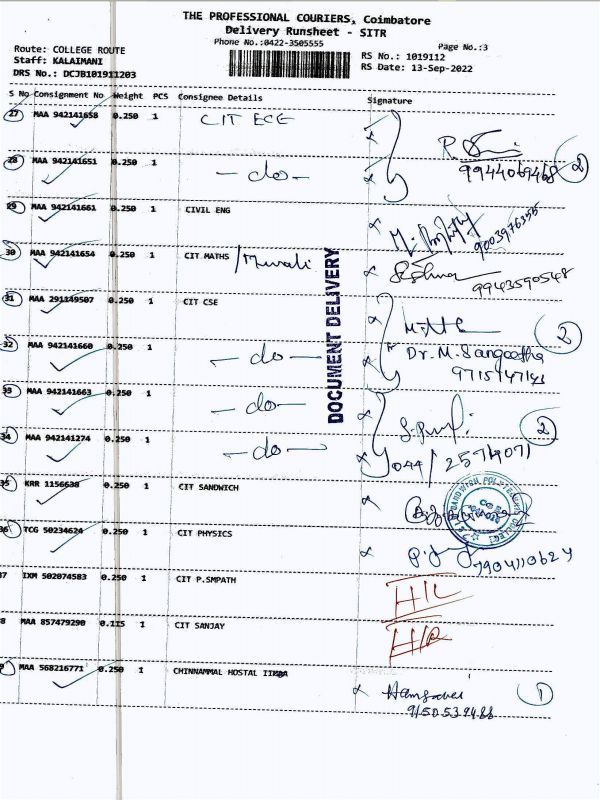 THE PROFESSIONAL COURIERS, Coimbatore
Delivery Runsheet - SITR
Phone No.:0422-3505555
Page No.:3
Route: COLLEGE ROUTE
RS No.: 1019112
Staff: KALAIMANI
RS Date: 13-Sep-2022
DRS No.: DCJB101911203
S No Consignment No Weight PCS Consignee Details Signature
27 MAA 942141658 0.250 1 CIT ECE
28 MAA 942141651 0.250 1 -do-
9944069468 2
29 MAA 942141661 0.250 1 CIVIL ENG
9003976355
30 MAA 942141654 0.250 1 CIT MATHS /Murali
9943590548
31 MAA 291149507 0.250 1 CIT CSE
32 MAA 942141660 0.250 1 -do-
Dr.M.Sangeetha
33 MAA 942141663 0.250 1 -do-
34 MAA 942141274 0.250 1 -do-
044/ 25719071 2
DOCUMENT DELIVERY
35 KRR 1156638 0.250 1 CIT SANDWICH
36 TCG 50234624 0.250 1 CIT PHYSICS
7904110624
37 IXM 502074583 0.250 1 CIT P.SMPATH
38 MAA 857479290 0.115 1 CIT SANJAY
39 MAA 568216771 0.250 1 CHINNAMMAL HOSTAL
1